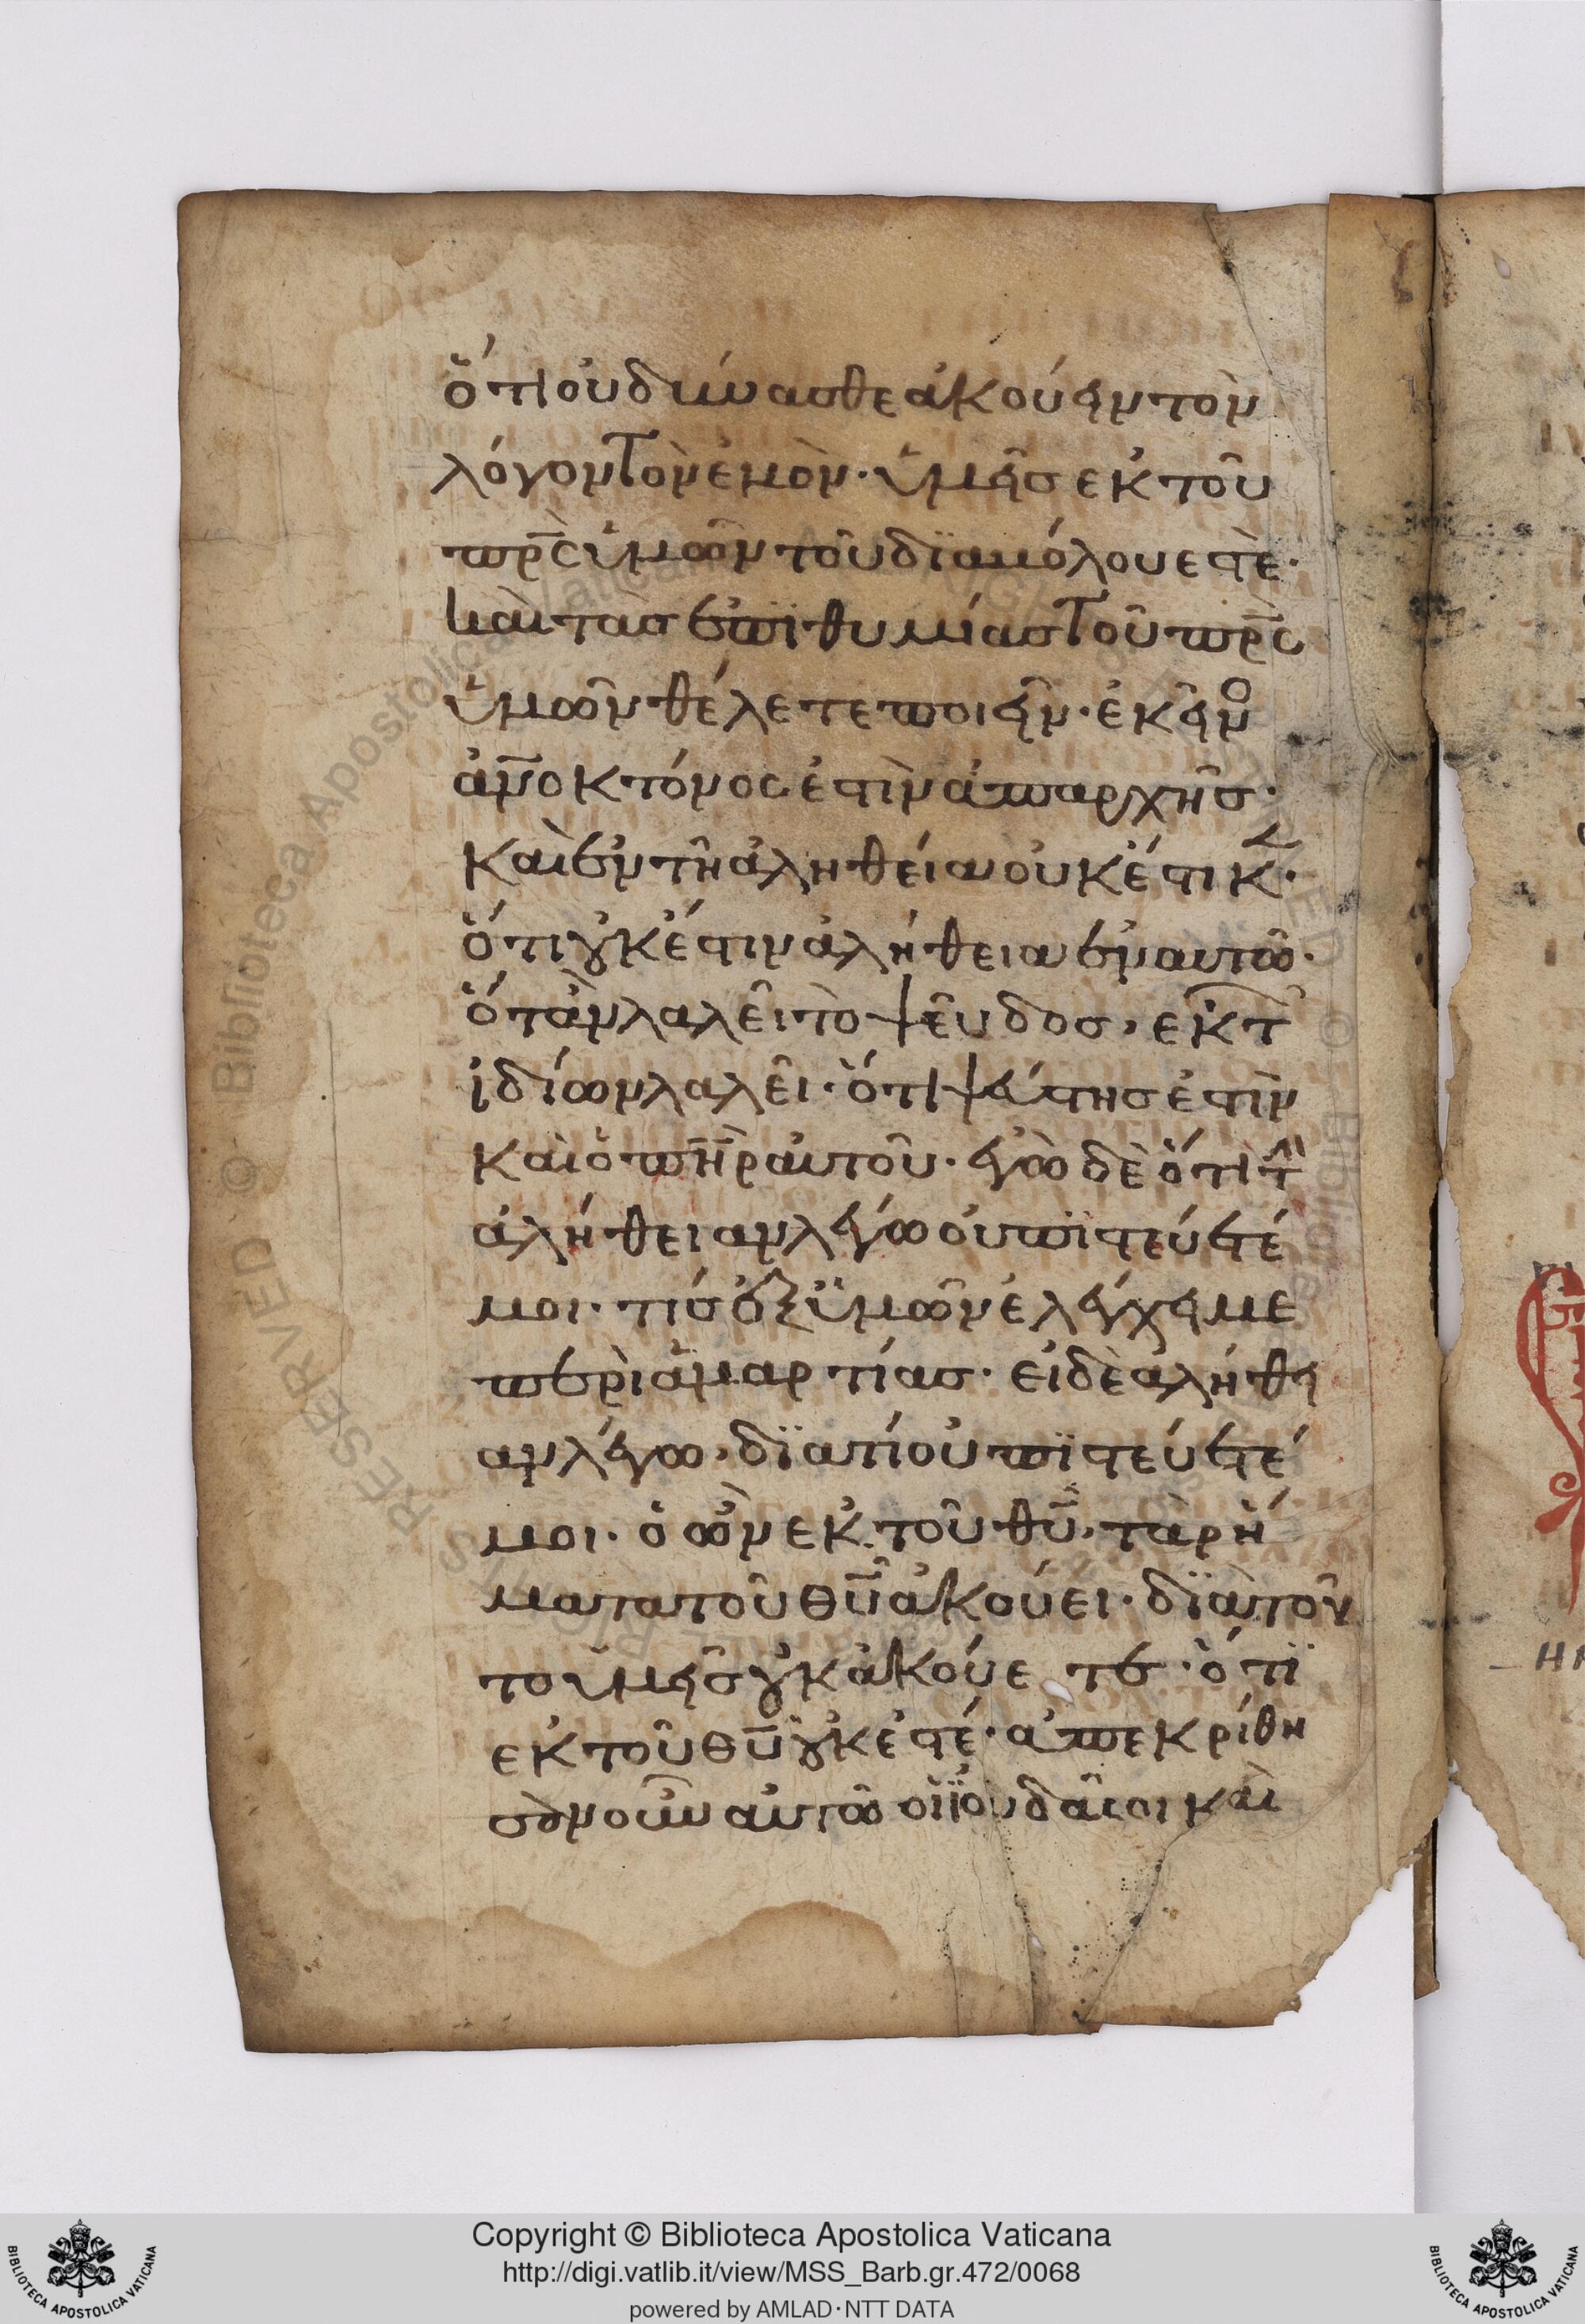 ὅτι οὐ δύνασθε ἀκούειν τὸν
λόγον τὸν ἐμὸν· ὑμεῖς ἐκ τοῦ
πρ̅ς ὑμῶν τοῦ διαβόλου ἐστὲ·
καὶ τὰς ἐπιθυμίας τοῦ πρ̅ς
ὑμῶν θέλετε ποιεῖν· ἐκεῖνο
ἀν̅οκτόνος ἐστὶν ἀπαρχῆς·
καὶ ἐν τῆ ἀληθεία οὐκ έστικ·
ὅτι οὐκ έστιν ἀλήθεια ἐν αυτῶ·
ὅτὰν λαλεῖ τὸ ψεῦδος, ἐκ τ
ἰδίων λαλεῖ· ὅτι ψεύστης ἐστὶν
καὶ ὁ πη̅ρ αὐτοῦ· ἐγὼ δὲ ὅτι τ
ἀλήθειαν λέγω οὐ πιστεύετέ
μοι· τίς ἐξ ὑμῶν ἐλέγχει με
περὶ ἁμαρτίας· εἰ δὲ ἀλήθει
αν λέγω, διατί οὐ πιστεύετέ
μοι· ὁ ὢν ἐκ τοῦ θυ̅, τὰ ρή
ματα τοῦ θυ̅ ἀκούει· διὰ τοῦ
το ὑμεῖς οὐκ ἀκούετε· ὅτι
ἐκ τοῦ θυ̅ οὐκ ἐστέ· ἀπεκρίθη
σὰν οὖν αὐτῶ οἱ ἰουδαῖοι καὶ
Copyright © Biblioteca Apostolica Vaticana
http://digi.vatlib.it/view/MSS_Barb.gr.472/0068
powered by AMLAD·NTT DATA